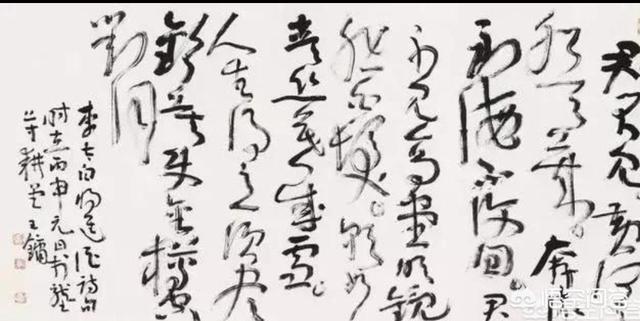 君不见黄河
水天上来奔流
到海不復回君
不见高堂明镜
悲白髮朝如
青丝暮成雪
人生得意须尽
歡莫使金樽空
對月
李太白将进酒诗句
时在丙申元日於
王镛
悟空问答